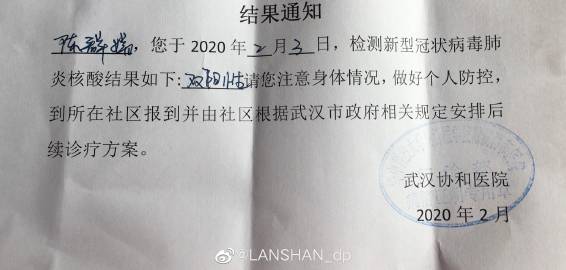 结果通知
陈群娣，您于 2020 年 2 月 3 日，检测新型冠状病毒肺
炎核酸结果如下:双阳性请您注意身体情况，做好个人防控，
到所在社区报到并由社区根据武汉市政府相关规定安排后
续诊疗方案。
武汉协和医院
2020 年 2 月
@LANSHAN_dp